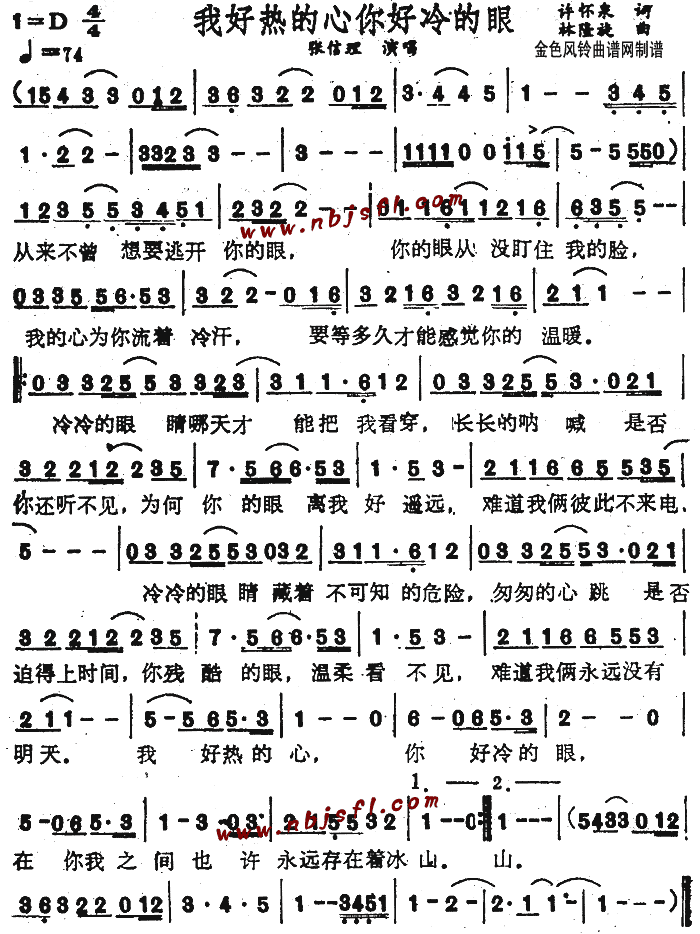 1=D 4/4 我好热的心你好冷的眼 许怀泉 词
♩=74 张信理 演唱 林隆旋 曲
金色风铃曲谱网制谱
(15433012 | 36322012 | 3·445 | 1--345
1·22- | 33233-- | 3--- | 111100i15 | 5-5550)
123553451 | 23222-- | 01161121 6 | 6355--
www.nbjsfl.com
从来不曾 想要逃开 你的眼， 你的眼从 没盯住 我的脸，
033556·53 | 322-016 | 32163216 | 211--
我的心为你流着 冷汗， 要等多久才能感觉你的 温暖。
0332553323 | 311·612 | 0332553·021
冷冷的眼 睛哪天才 能把 我看穿， 长长的呐 喊 是否
322112235 | 7·566·53 | 1·53- | 2116655535
你还听不见，为何 你 的眼 离我 好 遥远， 难道我俩彼此不来电，
5--- | 0332553032 | 311·612 | 0332553·021
冷冷的眼 睛 藏着 不可知 的危险， 匆匆的心 跳 是否
322112235 | 7·566·53 | 1·53- | 211665553
迫得上时间，你残 酷 的眼， 温柔 看 不见， 难道我俩永远没有
211-- | 5-565·3 | 1--0 | 6-065·3 | 2--0
明天。 我 好热的 心， 你 好冷的 眼，
1. 2.
5-065·3 | 1-3-03· | 225532 | 1--0 :| 1-- | (5433012
www.nbjsfl.com
在 你我 之 间 也 许 永远存在着冰 山。 山。
36322012 | 3·4·5 | 1--3451 | 1-2- | 2·11· | 1---)